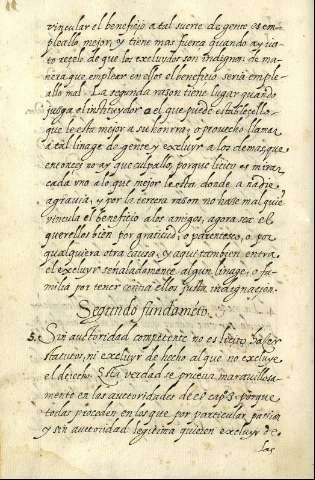 vincular el beneficio a tal suerte de gente es em-
pleallo mejor, y tiene mas fuerça quando ay jus-
to reçelo de que los excluydos son indignos. de ma-
nera que emplear en ellos el beneficio seria emple-
allo mal. La segunda rason tiene lugar quando
jusga el instituydor o el que puede establesello
que le esta mejor a su honrra, o prouecho llamar
a tal linage de gente y excluyr a los demas que
entonçes no ay que culpallo, porque licito es mirar
cada vno a lo que mejor le esta, donde a nadie
agrauia, y por la tercera rason no hase mal que
vincula el beneficio a los amigos, agora sea el
querelles bien por gratitud, o parentesco, o por
qualquiera otra causa, y aqui tambien entra
el excluyr señaladamente algun linage, o fa-
milia por tener contra ellos justa indignaçion.
Segundo fundamẽto.
5. Sin auctoridad competente no es licito haser
statutos, ni excluyr de hecho al que no excluye
el derecho. Esta verdad se prueua marauillosa-
mente en las auctoridades de el cap. 3. porque
todas proceden en los que por particular passion
y sin auctoridad legitima quieren excluyr de
las